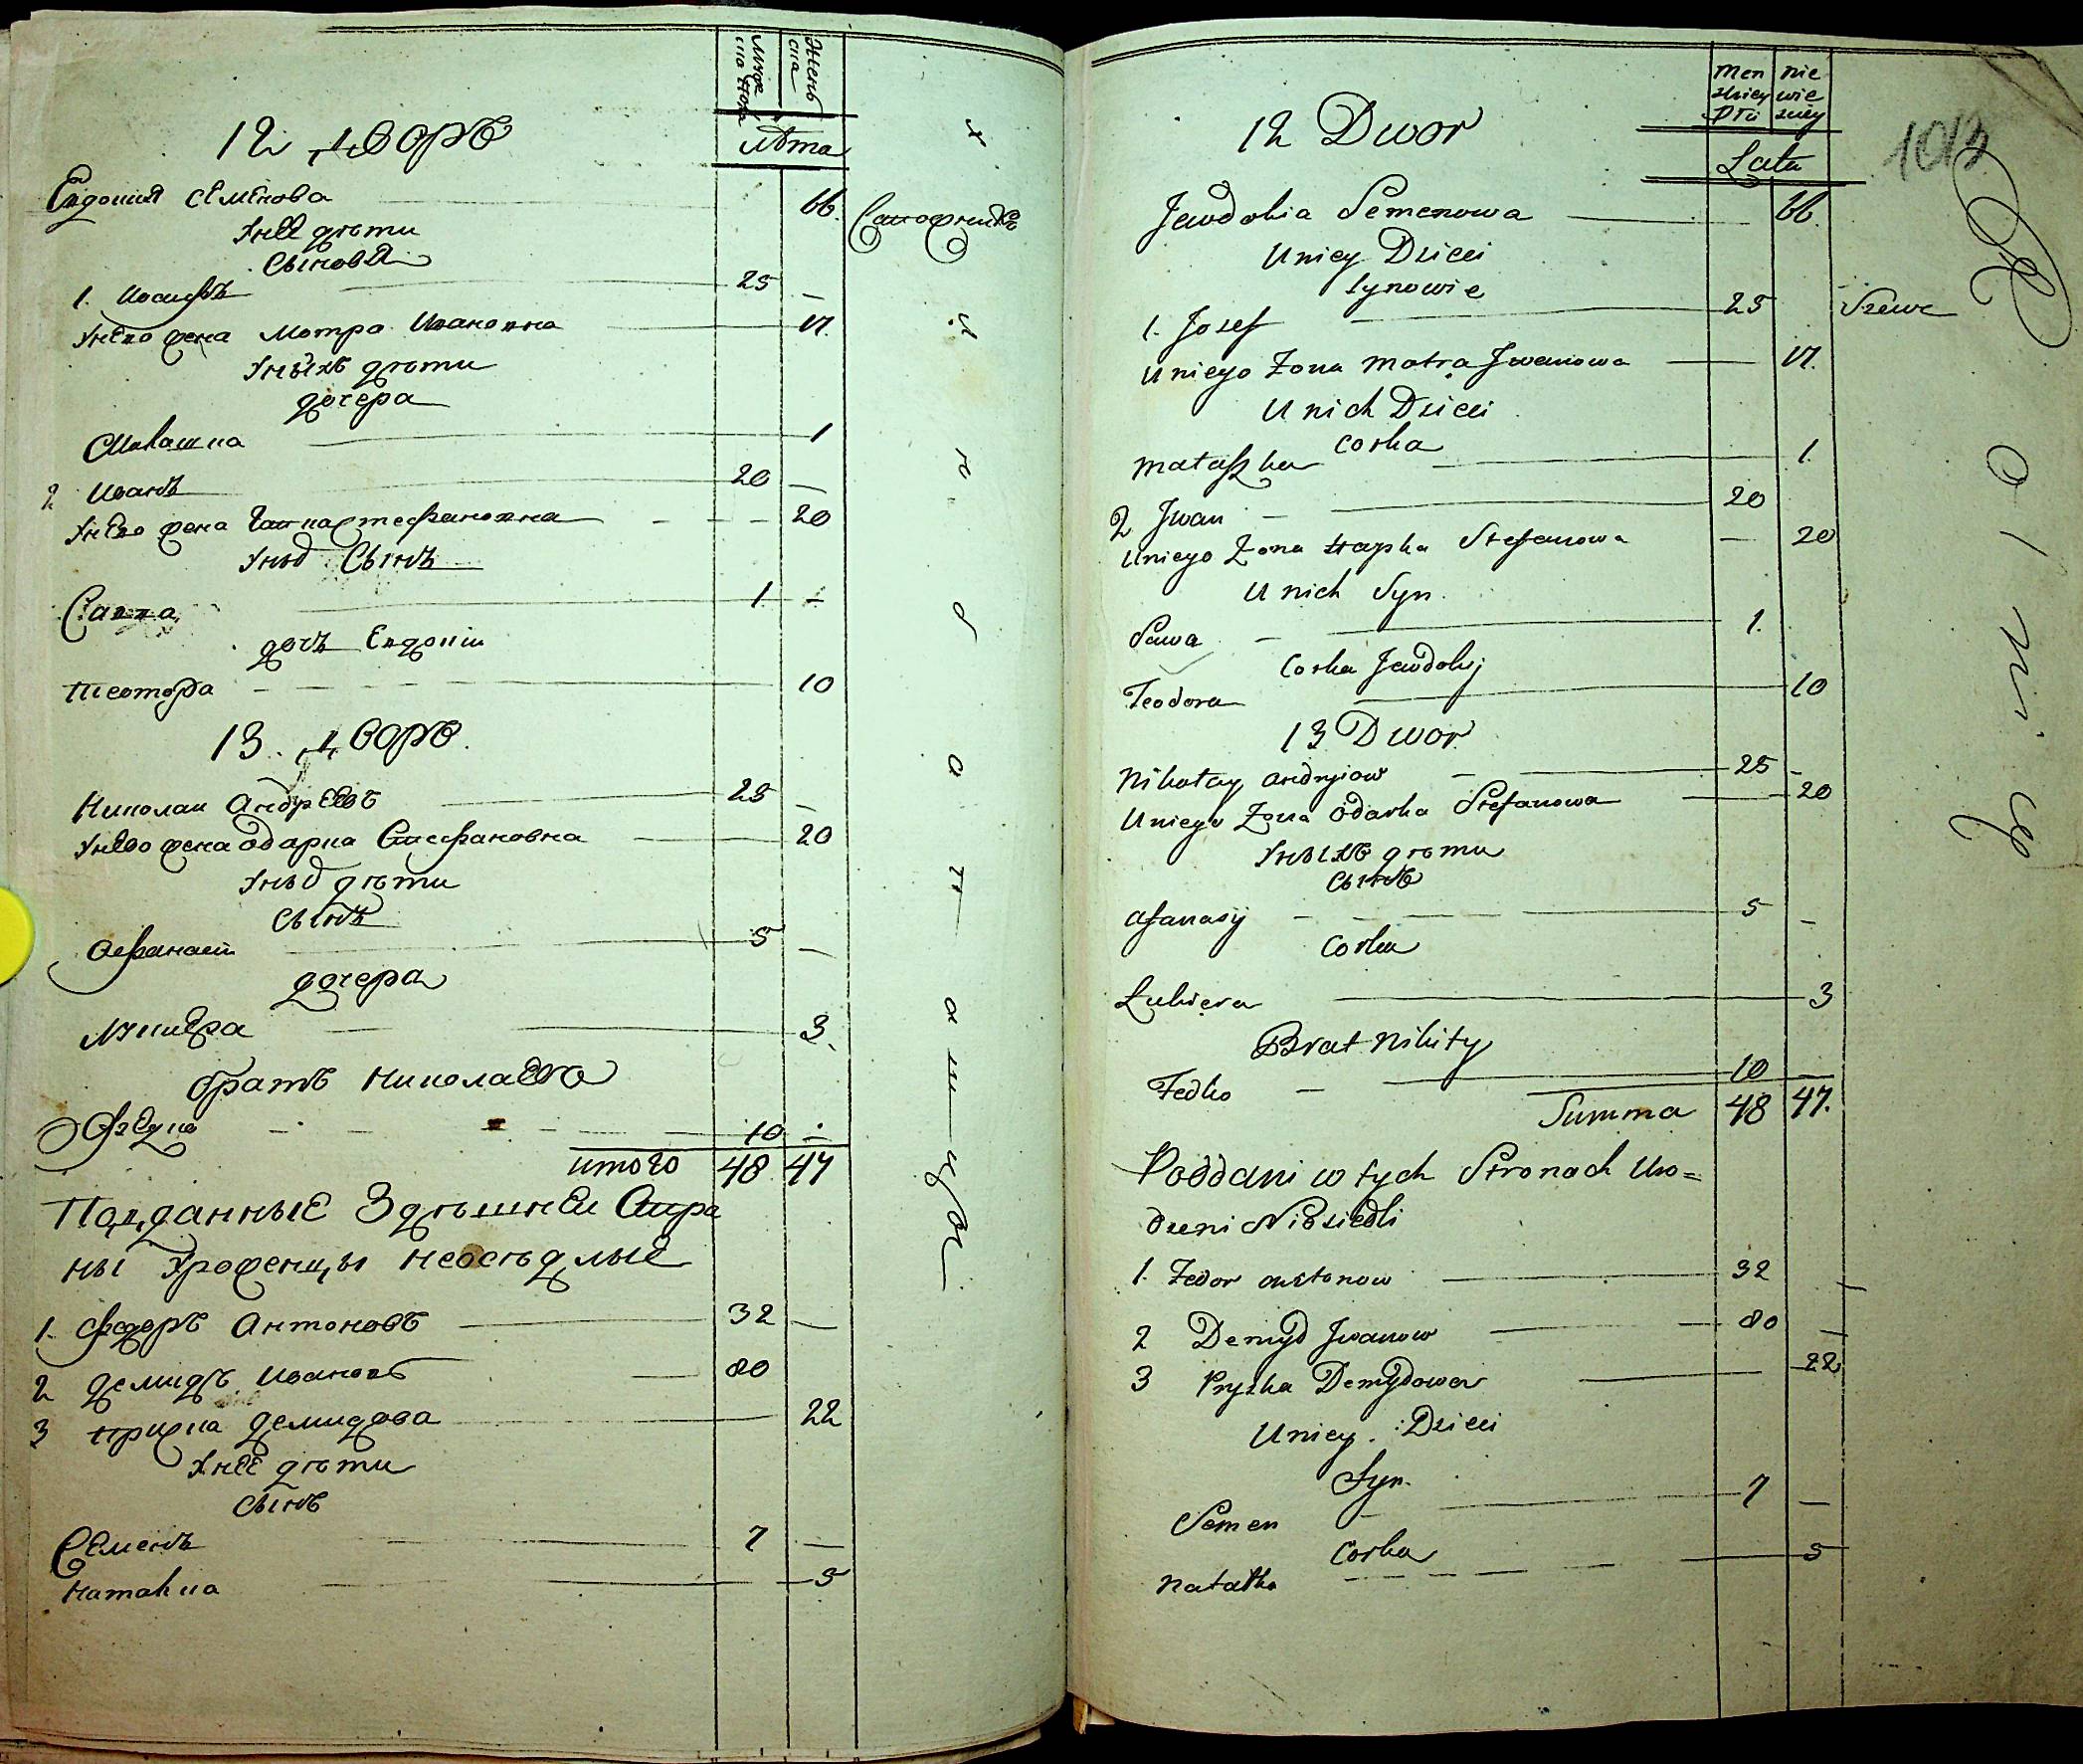 Мужеска пола
Женска
лѣта
12 дворъ
Евдокия Семенова 66. Сапожникъ
Унее дѣти
Сынове
1. Иосифъ 25 —
Унего жена Мотра Ивановна 17.
Унихъ дѣти
дочера
Малашка 1
2 Иванъ 20 —
Унего жена Гапка стефановна 20
Унихъ Сынъ
Савва 1 —
дочь Евдокіи
Теодора 10
13. дворъ.
Николаи Андреевъ 25 —
Унего жена Одарка Стефановна 20
Унихъ дѣти
Сынъ
Афанасіи 5 —
дочера
Лукиера 3.
братъ Николаева
Федко 10 —
итого 48 47
Подданные Здѣшней Стра
ны Уроженцы неосѣдлые
1. Федоръ Антоновъ 32 —
2 Демидъ Ивановъ 80
3 Приска Демидова 22
Унее дѣти
Сынъ
Семенъ 7 —
Наталка 5
Men nie
skiey wie
Płci skiey
Lata
101
12 Dwor
Jewdokia Semenowa 66.
Uniey Dzieci
Synowie
1. Josef 25 Szewc
Uniego Zona Motra Jwanowa 17.
Unich Dzieci
Corka
Małaszka 1.
2 Jwan 20
Uniego Zona Hapka Stefanowa — 20
Unich Syn.
Sawa 1.
Corka Jewdokij
Teodora 10
13 Dwor.
Nikołay Andryiow 25 —
Uniego Zona Odarka Stefanowa 20
Унихъ дѣти
Сынъ
Afanasy 5 —
Corka
Łukiera 3
Brat Nikity
Fedko 10 —
Summa 48 47.
Poddani w tych Stronach Uro=
dzeni Niosiedli
1. Fedor Antonow 32 —
2 Demyd Jwanow 80 —
3 Pryska Demydowa 22
Uniey Dzieci
Syn.
Semen 7 —
Corka
Natałka 5